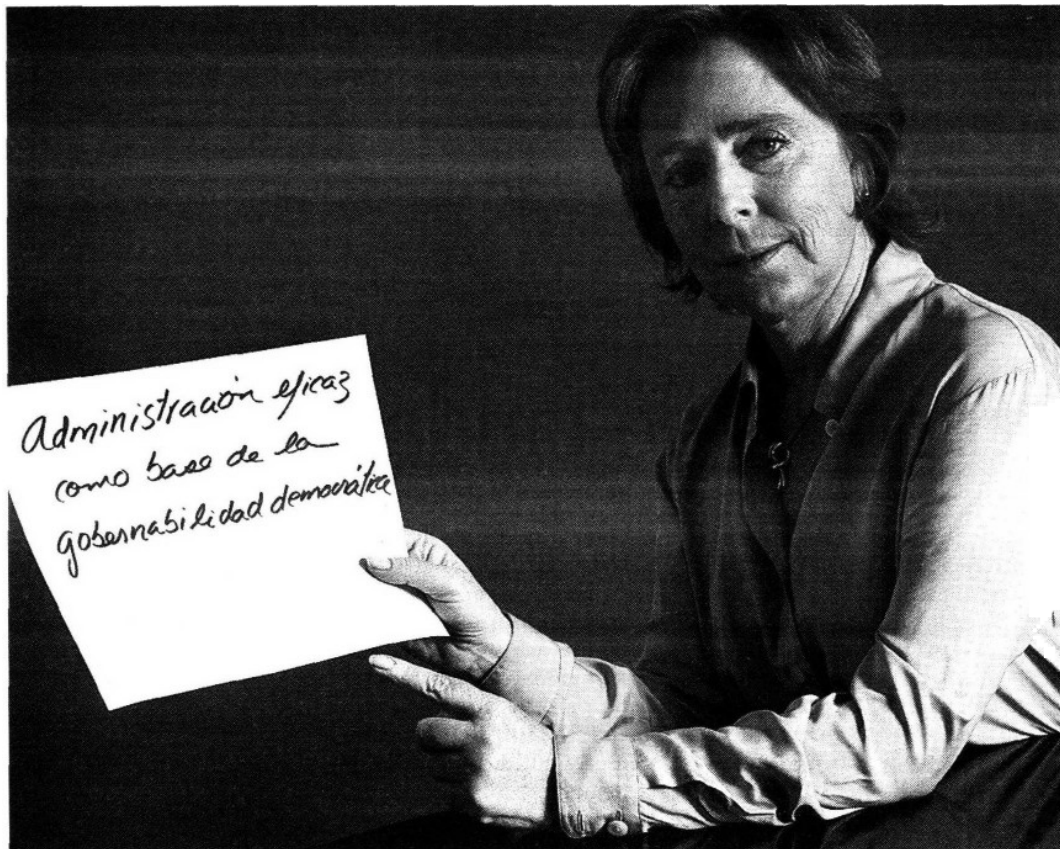 Administración eficaz
como base de la
gobernabilidad democrática